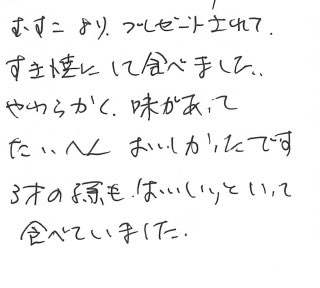 むすこより、プレゼントされて、
すき焼にして食べました。
やわらかく、味があって
たいへん おいしかったです
3才の孫も「おいしい」といって
食べていました。